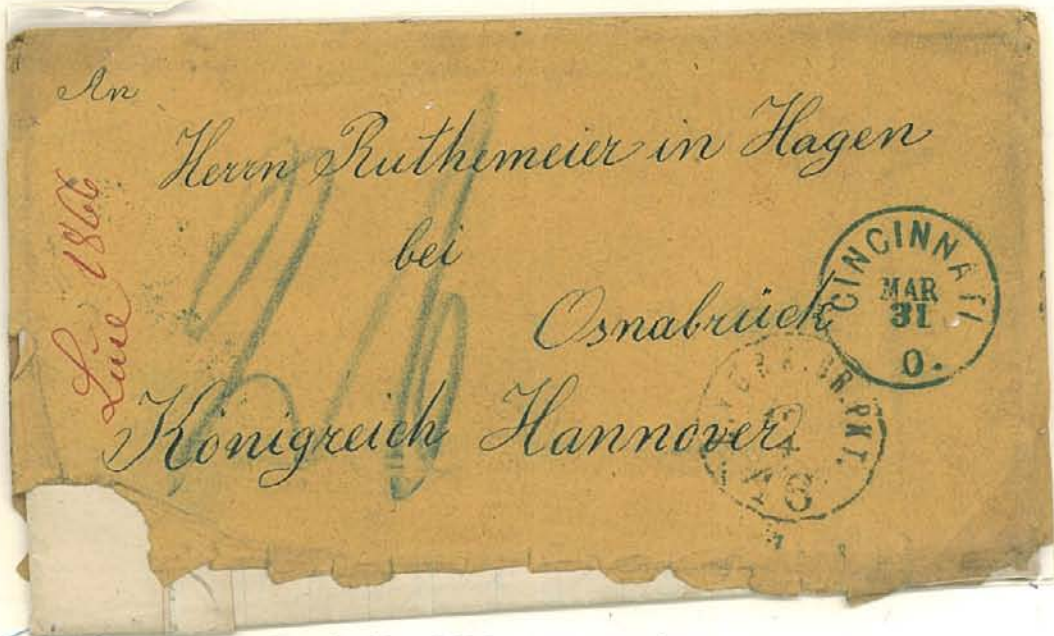 An
Herrn Ruthemeier in Hagen
bei
Osnabrück
Königreich Hannover.
1866
CINCINNATI
MAR
31
O.
YORK. BR. PKT.